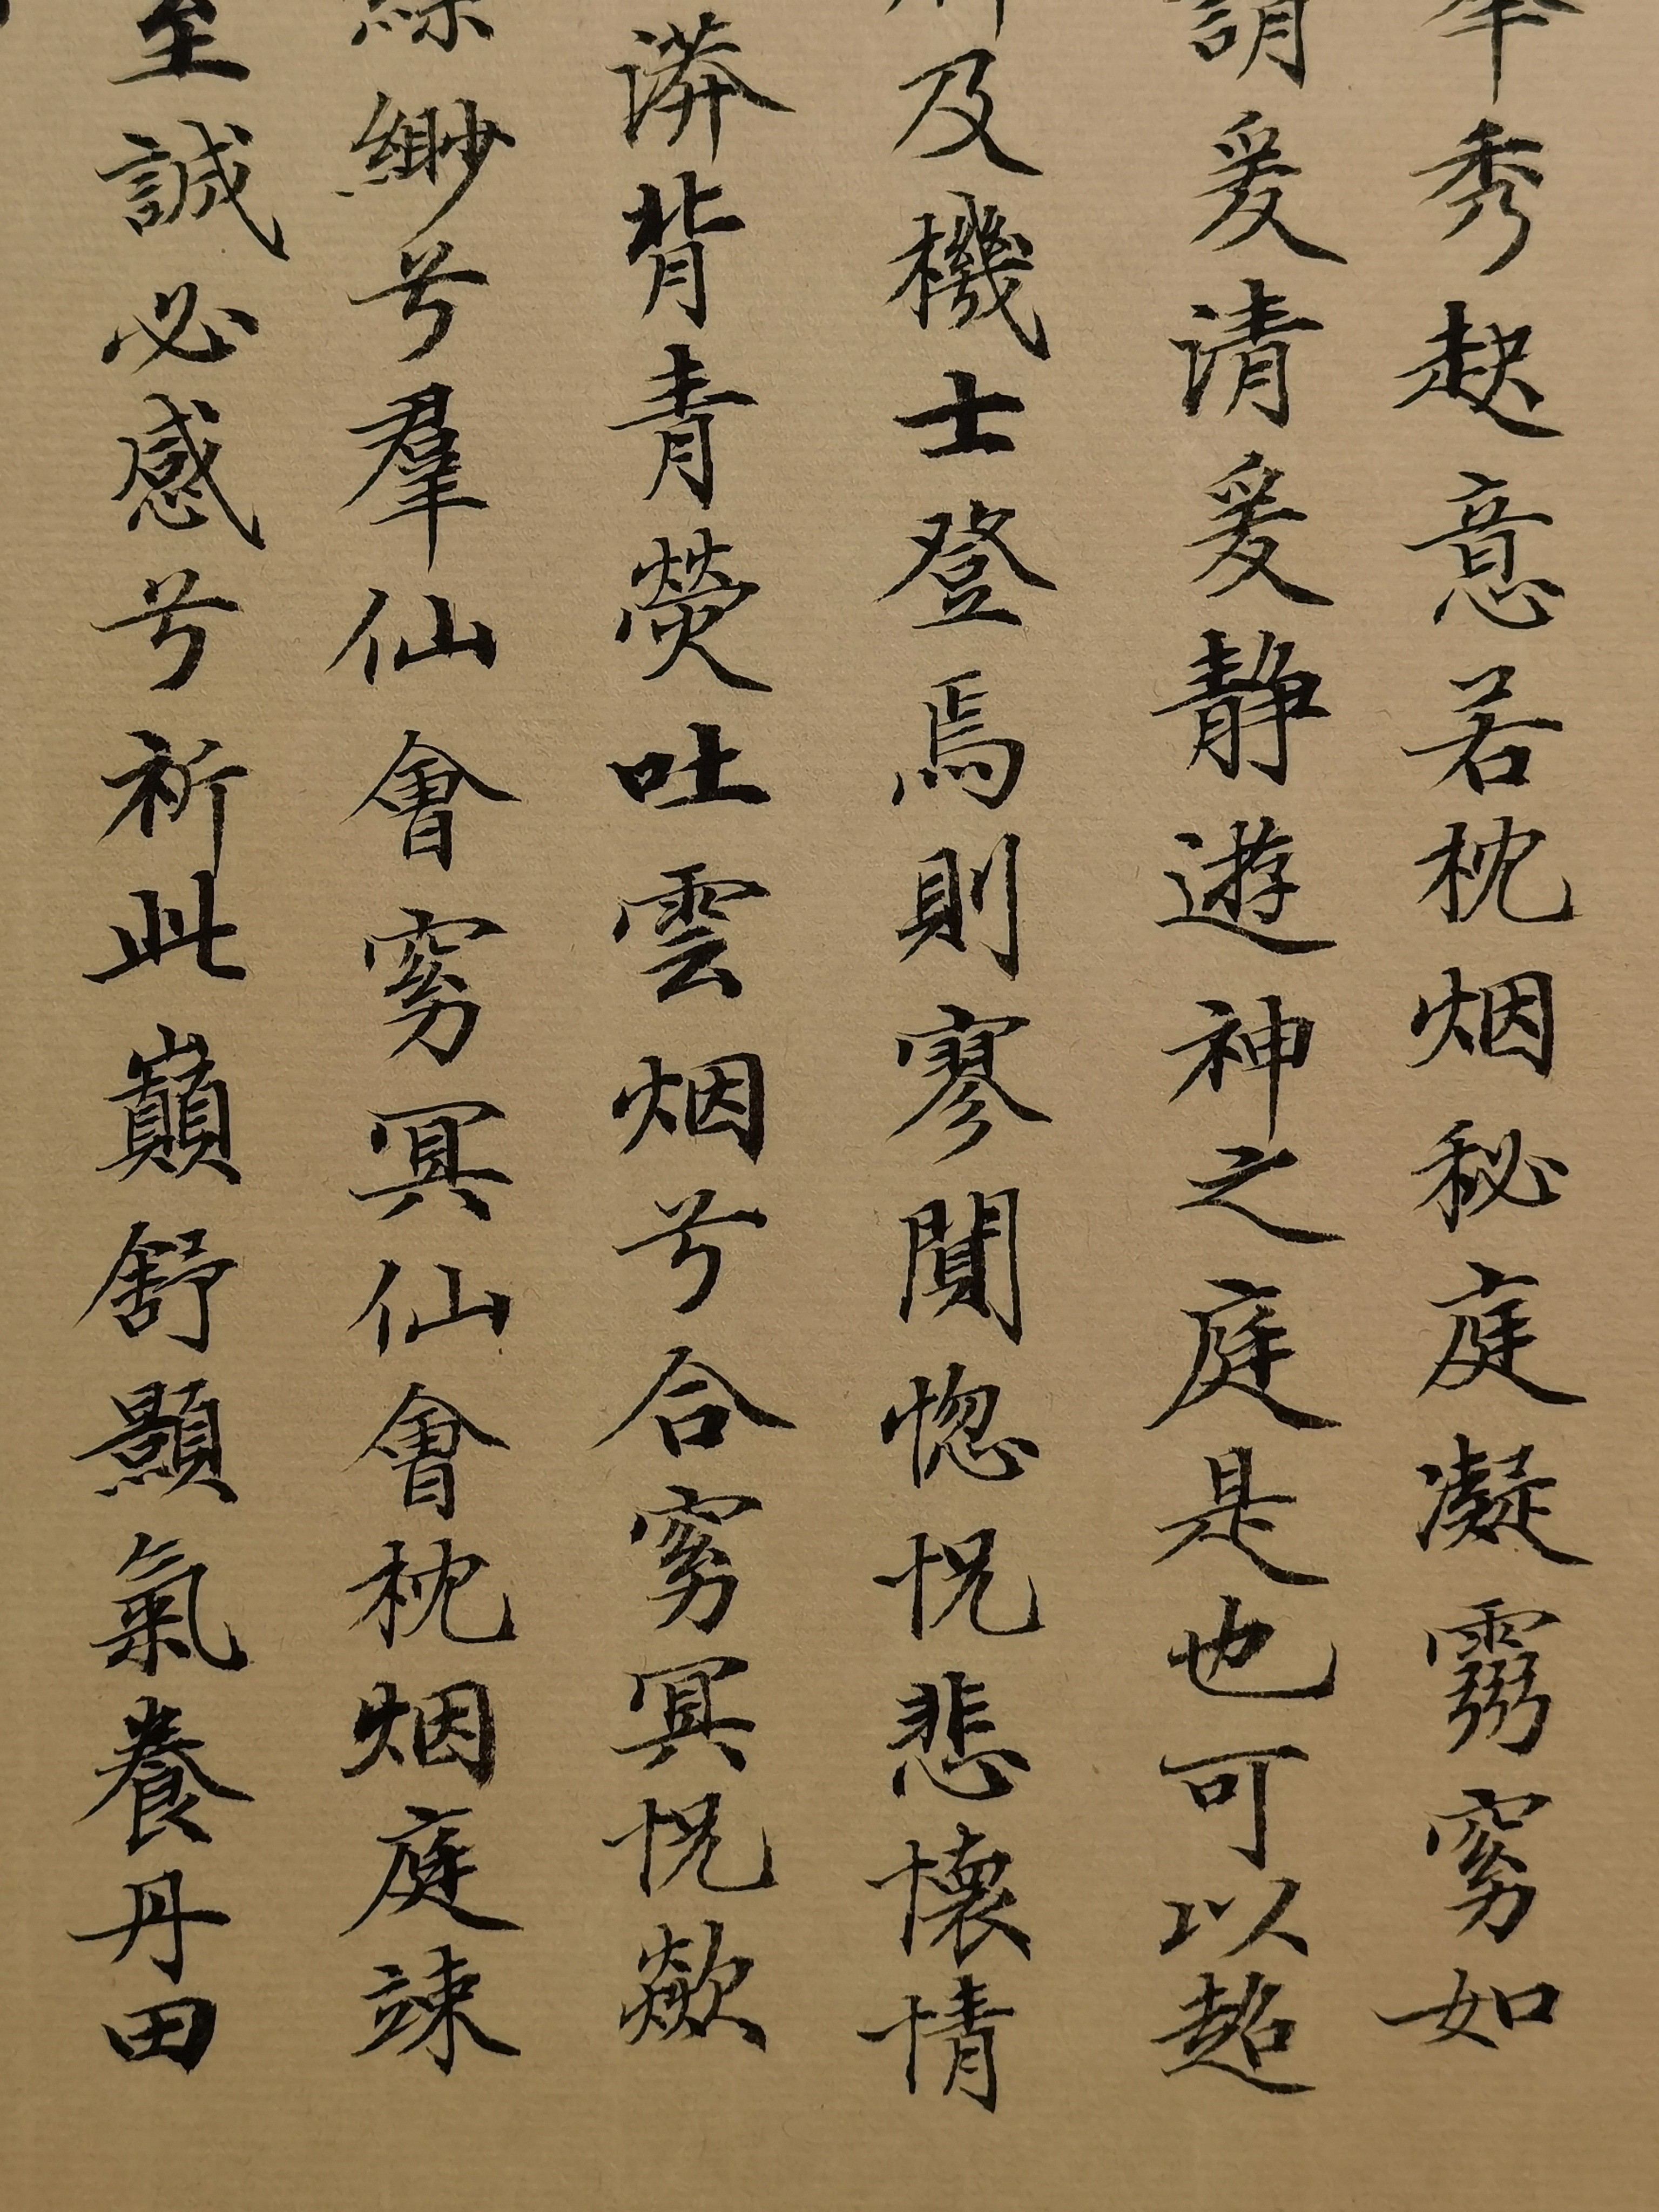 秀越意若枕烟秘庭凝霛窈如
謂爰清爰静遊神之庭是也可以超
及機士登焉則寥閴惚怳悲懷情
漭背青熒吐雲烟兮合窈冥怳欻
緜緲兮羣仙會窈冥仙會枕烟庭竦
至誠必感兮祈此巔舒顥氣養丹田